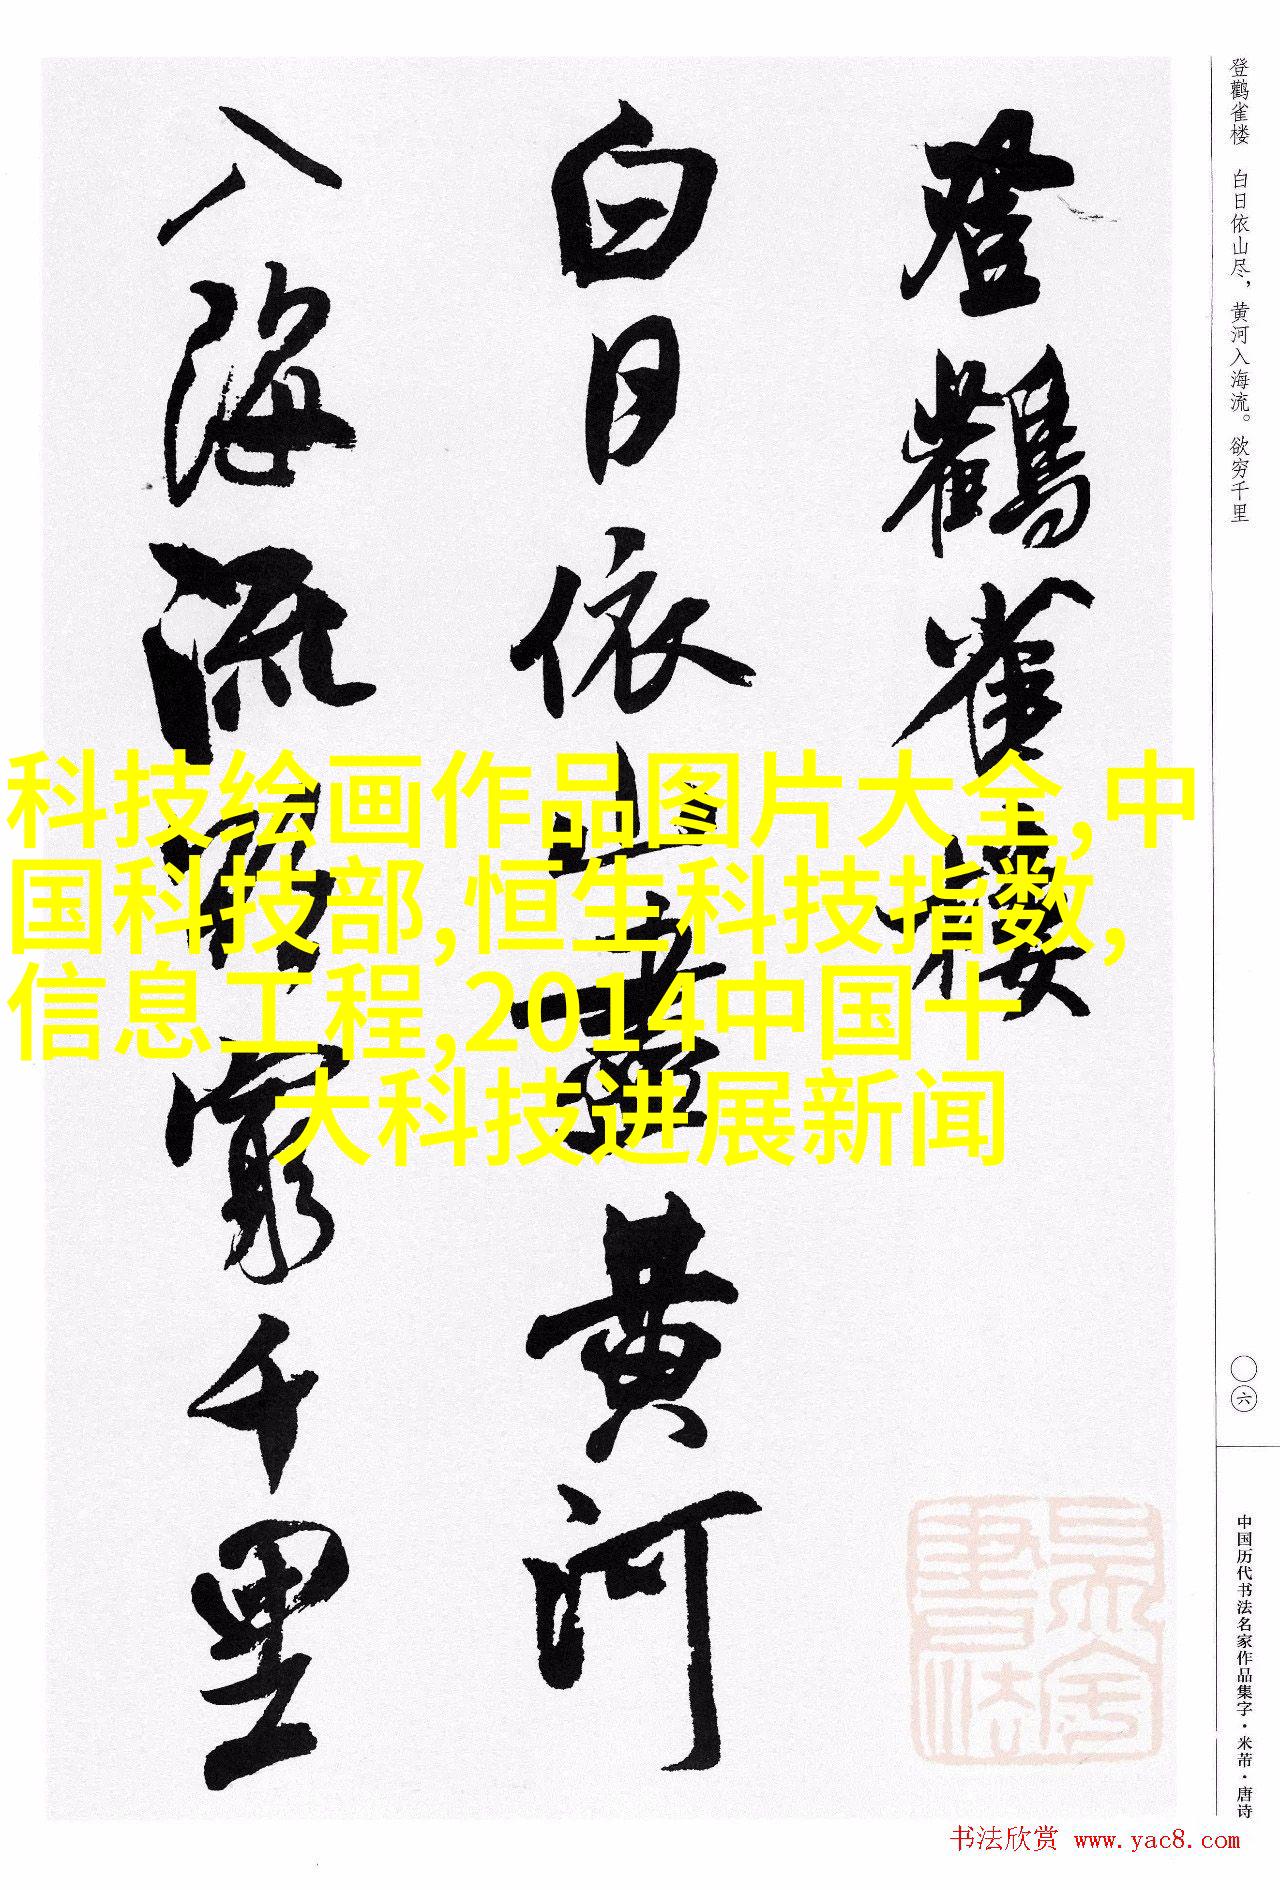 登鹳雀楼　白日依山尽，黄河入海流。欲穷千里
〇六
中国历代书法名家作品集字·米芾·唐诗
登鸛雀樓
白日依山盡黃河
入海流欲窮千里
科技绘画作品图片大全,中
国科技部,恒生科技指数,
信息工程,2014中国十
大科技进展新闻
书法欣赏 www.yac8.com